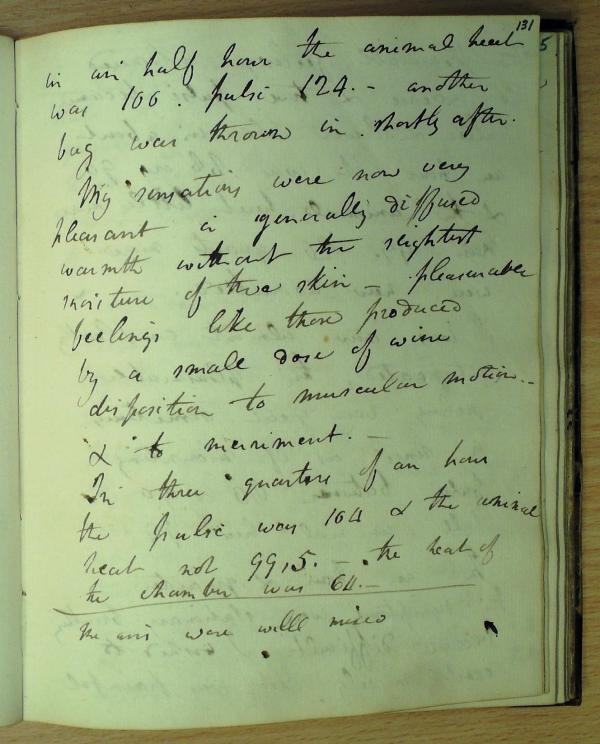 131
in an half hour the animal heat
was 100. pulse 124. - another
bag was thrown in shortly after.
My sensations were now very
pleasant a generally diffused
warmth without the slightest
moisture of the skin - pleasurable
feelings like those produced
by a small dose of wine
disposition to muscular motion -
& to merriment. -
In three quarters of an hour
the pulse was 104 & the animal
heat not 99,5. - the heat of
the chamber was 64. -
the airs were well mixed
5